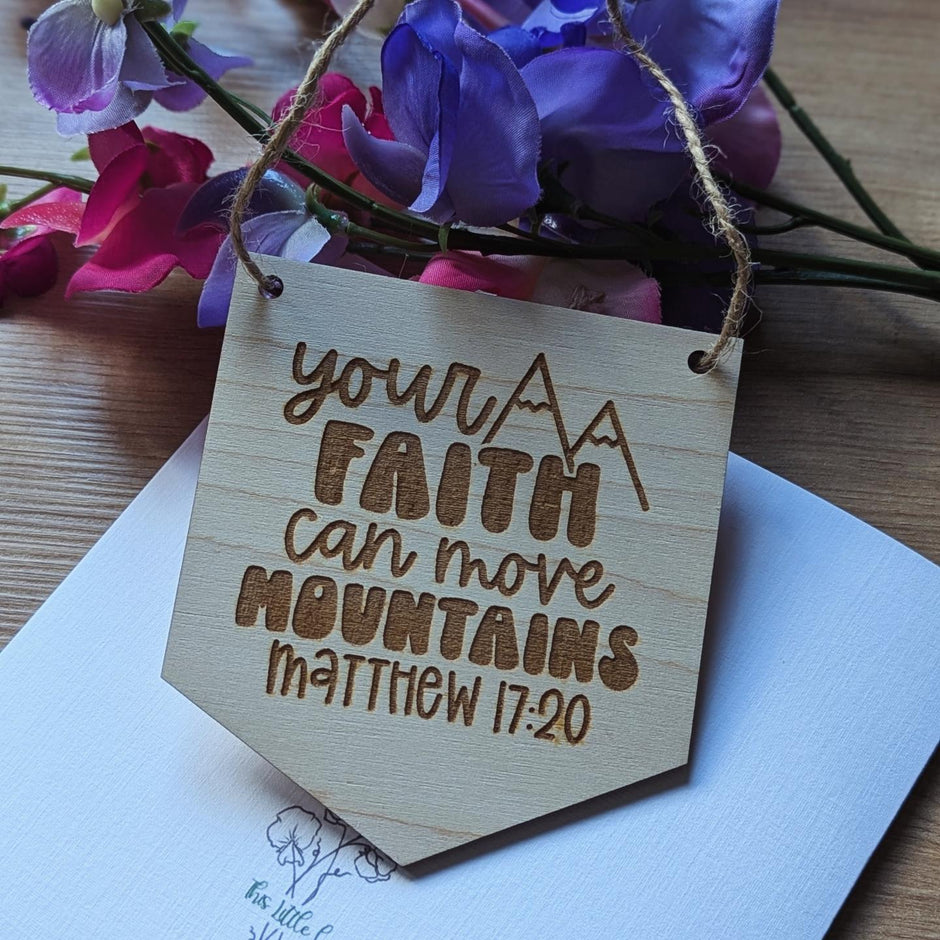 your
FAITH
can move
MOUNTAINS
maTTHew 17:20
This Little